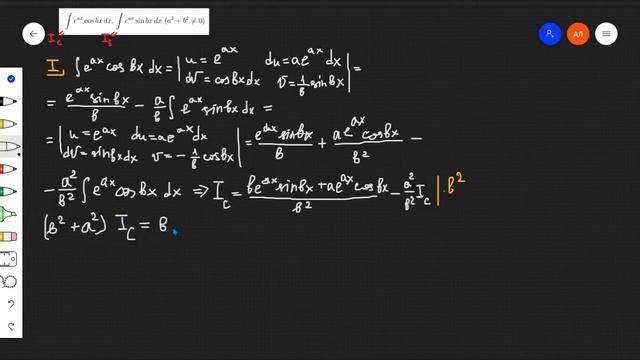 ∫ e^{ax} cos bx dx, ∫ e^{ax} sin bx dx (a² + b² ≠ 0)
I_c" I_s" АЛ
I. ∫ e^{ax} cos bx dx = | u = e^{ax} du = ae^{ax} dx dv = cos bx dx v = 1/b sin bx | =
= e^{ax} sin bx / b − a/b ∫ e^{ax} sin bx dx =
= | u = e^{ax} du = ae^{ax} dx dv = sin bx dx v = −1/b cos bx | = e^{ax} sin bx / b + ae^{ax} cos bx / b² −
− a²/b² ∫ e^{ax} cos bx dx ⇒ I_c = be^{ax} sin bx + ae^{ax} cos bx / b² − a²/b² I_c | · b²
(b² + a²) I_c = b